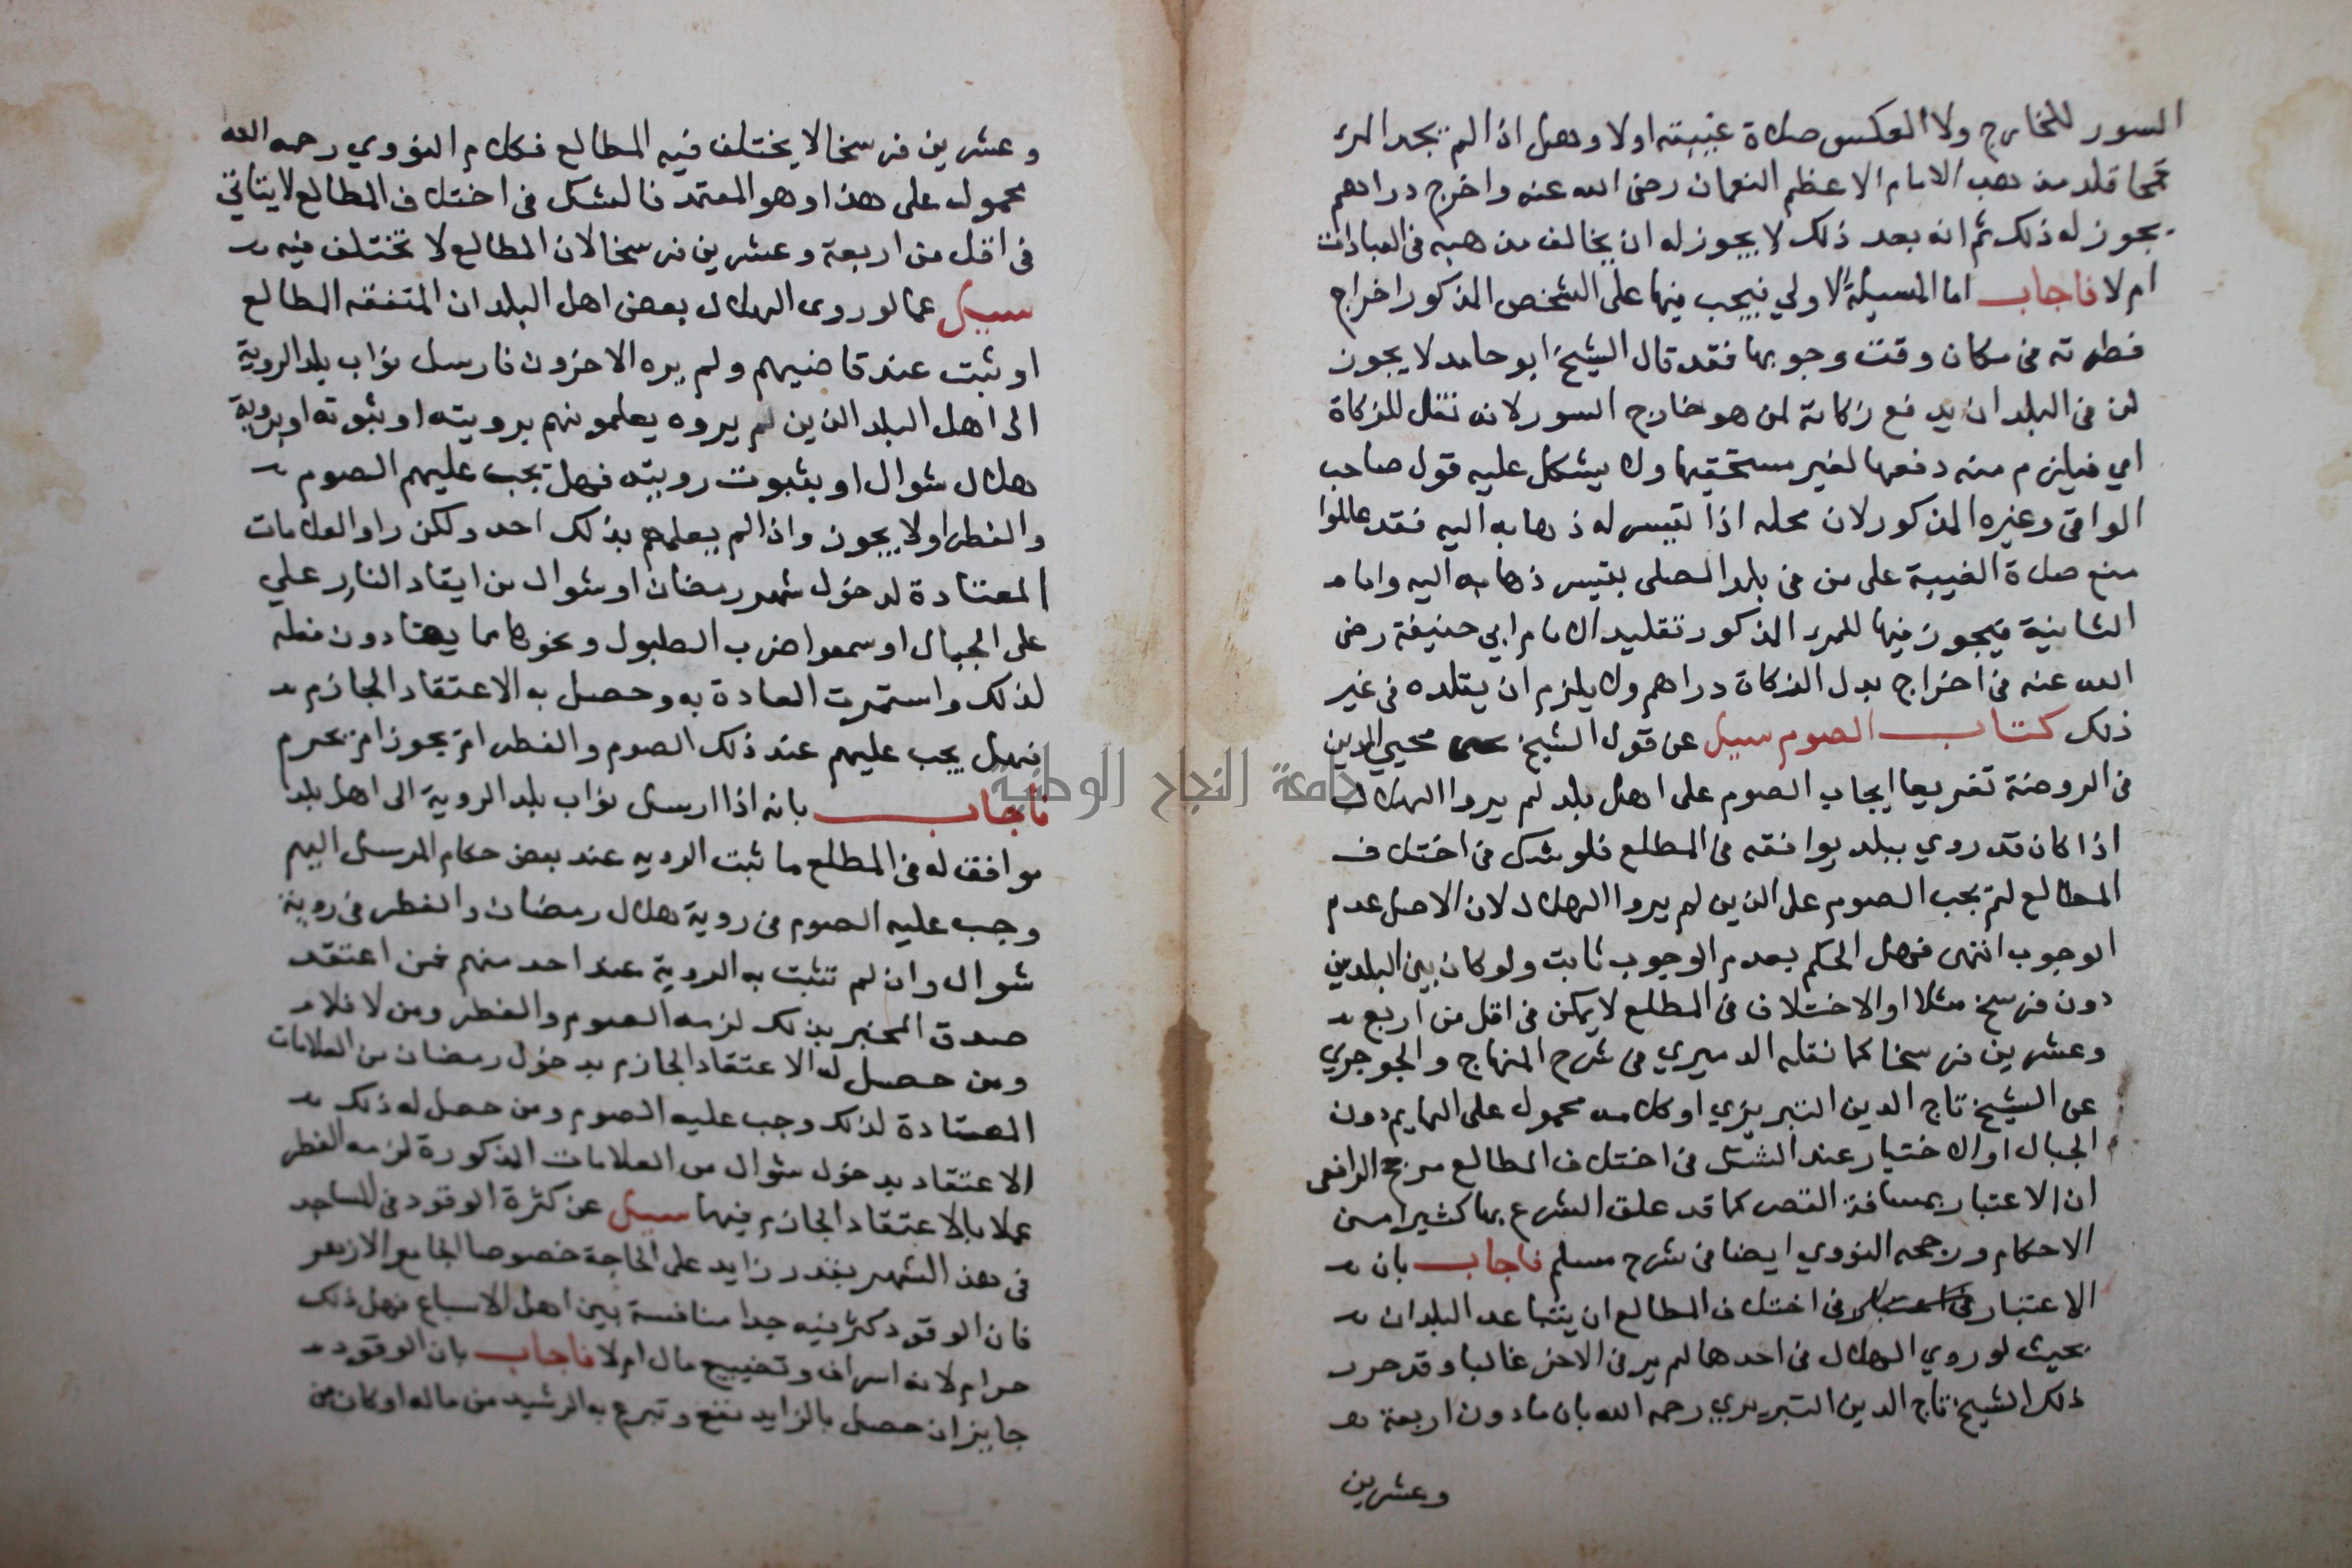 السور للخارج ولا العكس صلاة غيبته اولا وهل اذا لم يجد المرء
قمحا قلد مذهب الامام الاعظم النعمان رضى الله عنه واخرج دراهم
يجوز له ذلك ثم انه بعد ذلك لا يجوز له ان يخالف مذهبه فى العبادات
ام لا فاجاب اما المسيلة الاولي فيجب فيها على الشخص المذكور اخراج
فطرته فى مكان وقت وجوبها فقد قال الشيخ ابو حامد لا يجوز
لمن فى البلد ان يدفع زكاته لمن هو خارج السور لانه نقل للزكاة
اي فيلزم منه دفعها لغير مستحقيها ولا يشكل عليه قول صاحب
الوافى وغيره المذكور لان محله اذا تيسر له ذهابه اليه فقد عللوا
منع صلاة الغيبة على من فى بلد المصلى بتيسر ذهابه اليه واما
الثانية فيجوز فيها للمرء المذكور تقليد الامام ابي حنيفة رضى
الله عنه فى اخراج بدل الزكاة دراهم ولا يلزم ان يقلده فى غير
ذلك كتاب الصوم سيل عن قول الشيخ محيي الدين
فى الروضة تفريعا ايجاب الصوم على اهل بلد لم يروا الهلال
اذا كان قد روي ببلد يوافقه فى المطلع فلو شك فى اختلاف
المطالع لم يجب الصوم على الذين لم يروا الهلال لان الاصل عدم
الوجوب انتهى فهل الحكم بعدم الوجوب ثابت ولو كان بين البلدين
دون فرسخ مثلا او الاختلاف فى المطلع لا يمكن فى اقل من اربع
وعشرين فرسخا كما نقله الدميري فى شرح المنهاج والجوجري
عن الشيخ تاج الدين التبريزي او كلامه محمول على البهايم دون
الجبال او الاختيار عند الشك فى اختلاف المطالع مرجح الرافعى
ان الاعتبار بمسافة القصر كما قد علق الشرع بها كثيرا من
الاحكام ورجحه النووي ايضا فى شرح مسلم فاجاب بان
الاعتبار فى اختلاف المطالع ان يتباعد البلدان
بحيث لو روي الهلال فى احدها لم ير فى الاخر غالبا وقد حرر
ذلك الشيخ تاج الدين التبريزي رحمه الله بان ما دون اربعة
وعشرين
وعشرين فرسخا لا يختلف فيه المطالع فكلام النووي رحمه الله
محمول على هذا وهو المعتمد فالشك فى اختلاف المطالع لا يتاتي
فى اقل من اربعة وعشرين فرسخا لان المطالع لا تختلف فيه
سيل عما لو روى الهلال بعض اهل البلدان المتفقه المطالع
او ثبت عند قاضيهم ولم يره الاخرون فارسل نواب بلد الروية
الى اهل البلد الذين لم يروه يعلمونهم برويته او بثبوته او بروية
هلال شوال او بثبوت رويته فهل يجب عليهم الصوم
والفطر اولا يجوز واذا لم يعلمهم بذلك احد ولكن راوا العلامات
المعتادة لدخول شهر رمضان او شوال من ايقاد النار علي
على الجبال او سمعوا ضرب الطبول ونحوها مما يعتادون فعله
لذلك واستمرت العادة به وحصل به الاعتقاد الجازم
فهل يجب عليهم عند ذلك الصوم والفطر ام يجوز ام يحرم
فاجاب بانه اذا ارسل نواب بلد الروية الى اهل بلد
موافق له فى المطلع ما ثبت الرويه عند بعض حكام المرسل اليهم
وجب عليه الصوم فى روية هلال رمضان والفطر فى روية
شوال وان لم تثبت به الروية عند احد منهم فمن اعتقد
صدق المخبر بذلك لزمه الصوم والفطر ومن لا فلا
ومن حصل له الاعتقاد الجازم بدخول رمضان من العلامات
المعتادة لذلك وجب عليه الصوم ومن حصل له ذلك
الاعتقاد بدخول شوال من العلامات المذكورة لزمه الفطر
عملا بالاعتقاد الجازم فيها سيل عن كثرة الوقود فى المساجد
فى هذا الشهر بقدر زايد على الحاجة خصوصا الجامع الازهر
فان الوقود كثر فيه جدا منافسة بين اهل الاسباع فهل ذلك
حرام لانه اسراف وتضييع مال ام لا فاجاب بان الوقود
جايز ان حصل بالزايد نفع وتبرع به الرشيد من ماله او كان من
جامعة النجاح الوطنية